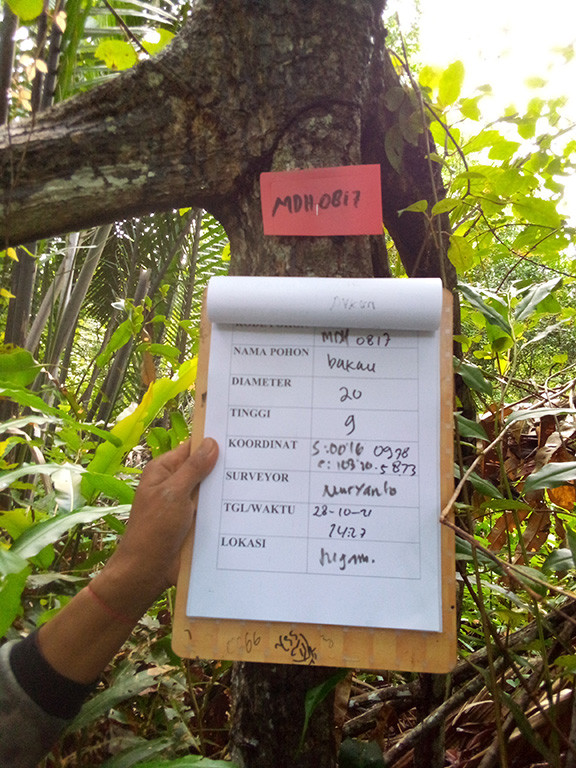 MDH 0817
MDH 0817
NAMA POHON bakau
DIAMETER 20
TINGGI 9
KOORDINAT S:00°16 0978
e: 109°20.5873
SURVEYOR Nuryanto
TGL/WAKTU 28-10-21
14:27
LOKASI